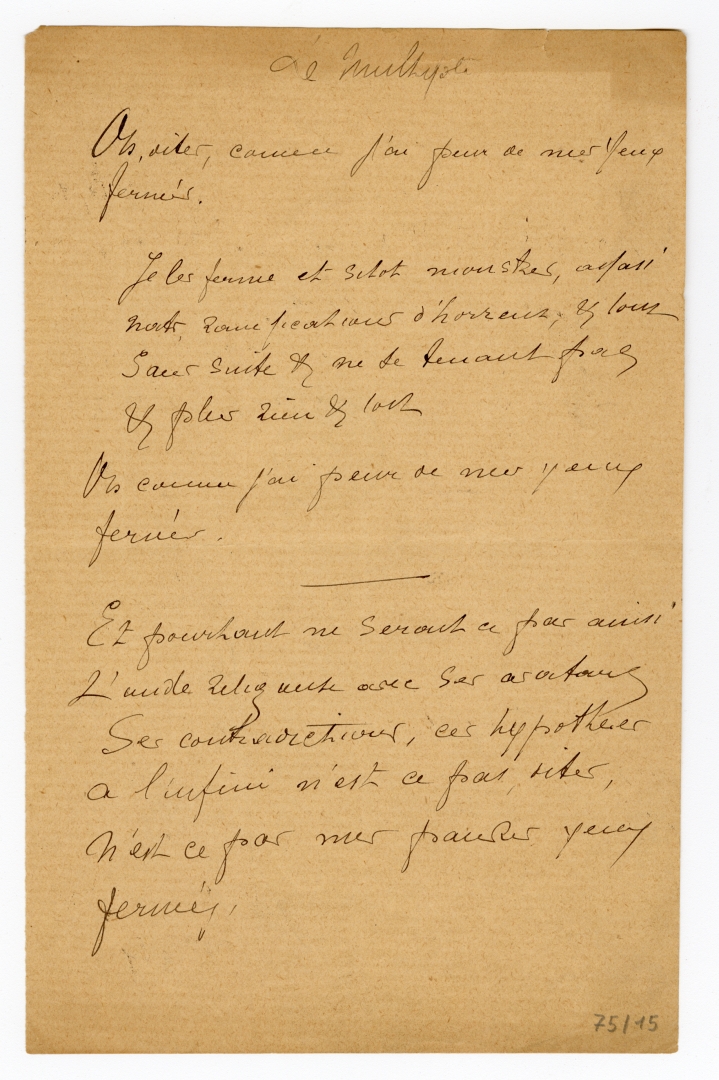 Oh, dites, comme j'ai peur de mes yeux
fermés.
Je les ferme et sitôt monstres, assassi
nats, ramifications d'horreurs, & tout
sans suite & ne se tenant pas
& plus rien & tout
Oh comme j'ai peur de mes yeux
fermés.
Et pourtant ne serait ce pas ainsi
L'Inde religieuse avec ses avatars
Ses contradictions, ces hypothèses
a l'infini n'est ce pas, dites,
N'est ce pas mes pauvres yeux
fermés,
75/15